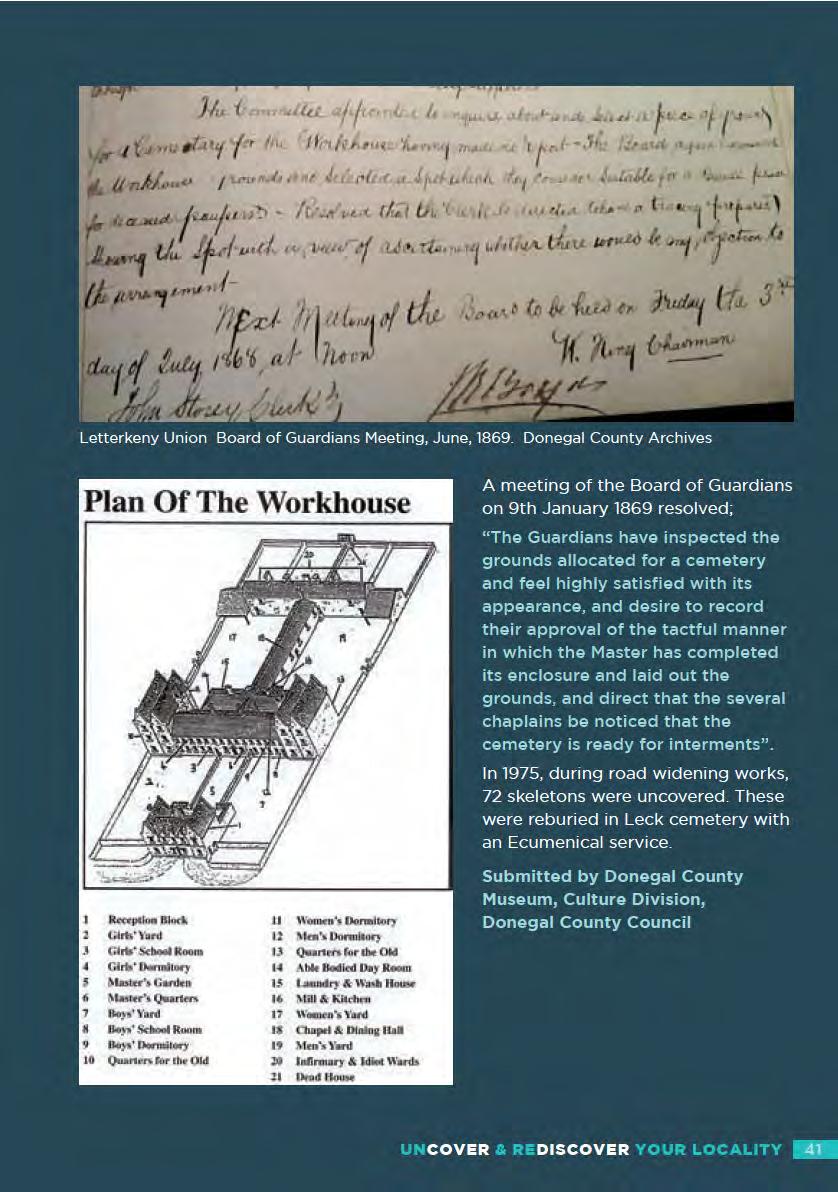 The Committee appointed to enquire about and select a piece of ground
for a Cemetary for the Workhouse having made no report - The Board again
the Workhouse grounds and selected a Spot which they consider Suitable for a
for deceased paupers - Resolved that the Clerk be directed to have a tracing prepared
Showing the Spot with a view of ascertaining whether there would be any objection to
the arrangement -
Next Meeting of the Board to be held on Friday the 3rd
day of July 1868, at Noon
Chairman
John Storey Clerk
Letterkeny Union Board of Guardians Meeting, June, 1869. Donegal County Archives
Plan Of The Workhouse
1 Reception Block
2 Girls' Yard
3 Girls' School Room
4 Girls' Dormitory
5 Master's Garden
6 Master's Quarters
7 Boys' Yard
8 Boys' School Room
9 Boys' Dormitory
10 Quarters for the Old
11 Women's Dormitory
12 Men's Dormitory
13 Quarters for the Old
14 Able Bodied Day Room
15 Laundry & Wash House
16 Mill & Kitchen
17 Women's Yard
18 Chapel & Dining Hall
19 Men's Yard
20 Infirmary & Idiot Wards
21 Dead House
A meeting of the Board of Guardians
on 9th January 1869 resolved;
“The Guardians have inspected the
grounds allocated for a cemetery
and feel highly satisfied with its
appearance, and desire to record
their approval of the tactful manner
in which the Master has completed
its enclosure and laid out the
grounds, and direct that the several
chaplains be noticed that the
cemetery is ready for interments”.
In 1975, during road widening works,
72 skeletons were uncovered. These
were reburied in Leck cemetery with
an Ecumenical service.
Submitted by Donegal County
Museum, Culture Division,
Donegal County Council
UNCOVER & REDISCOVER YOUR LOCALITY 41